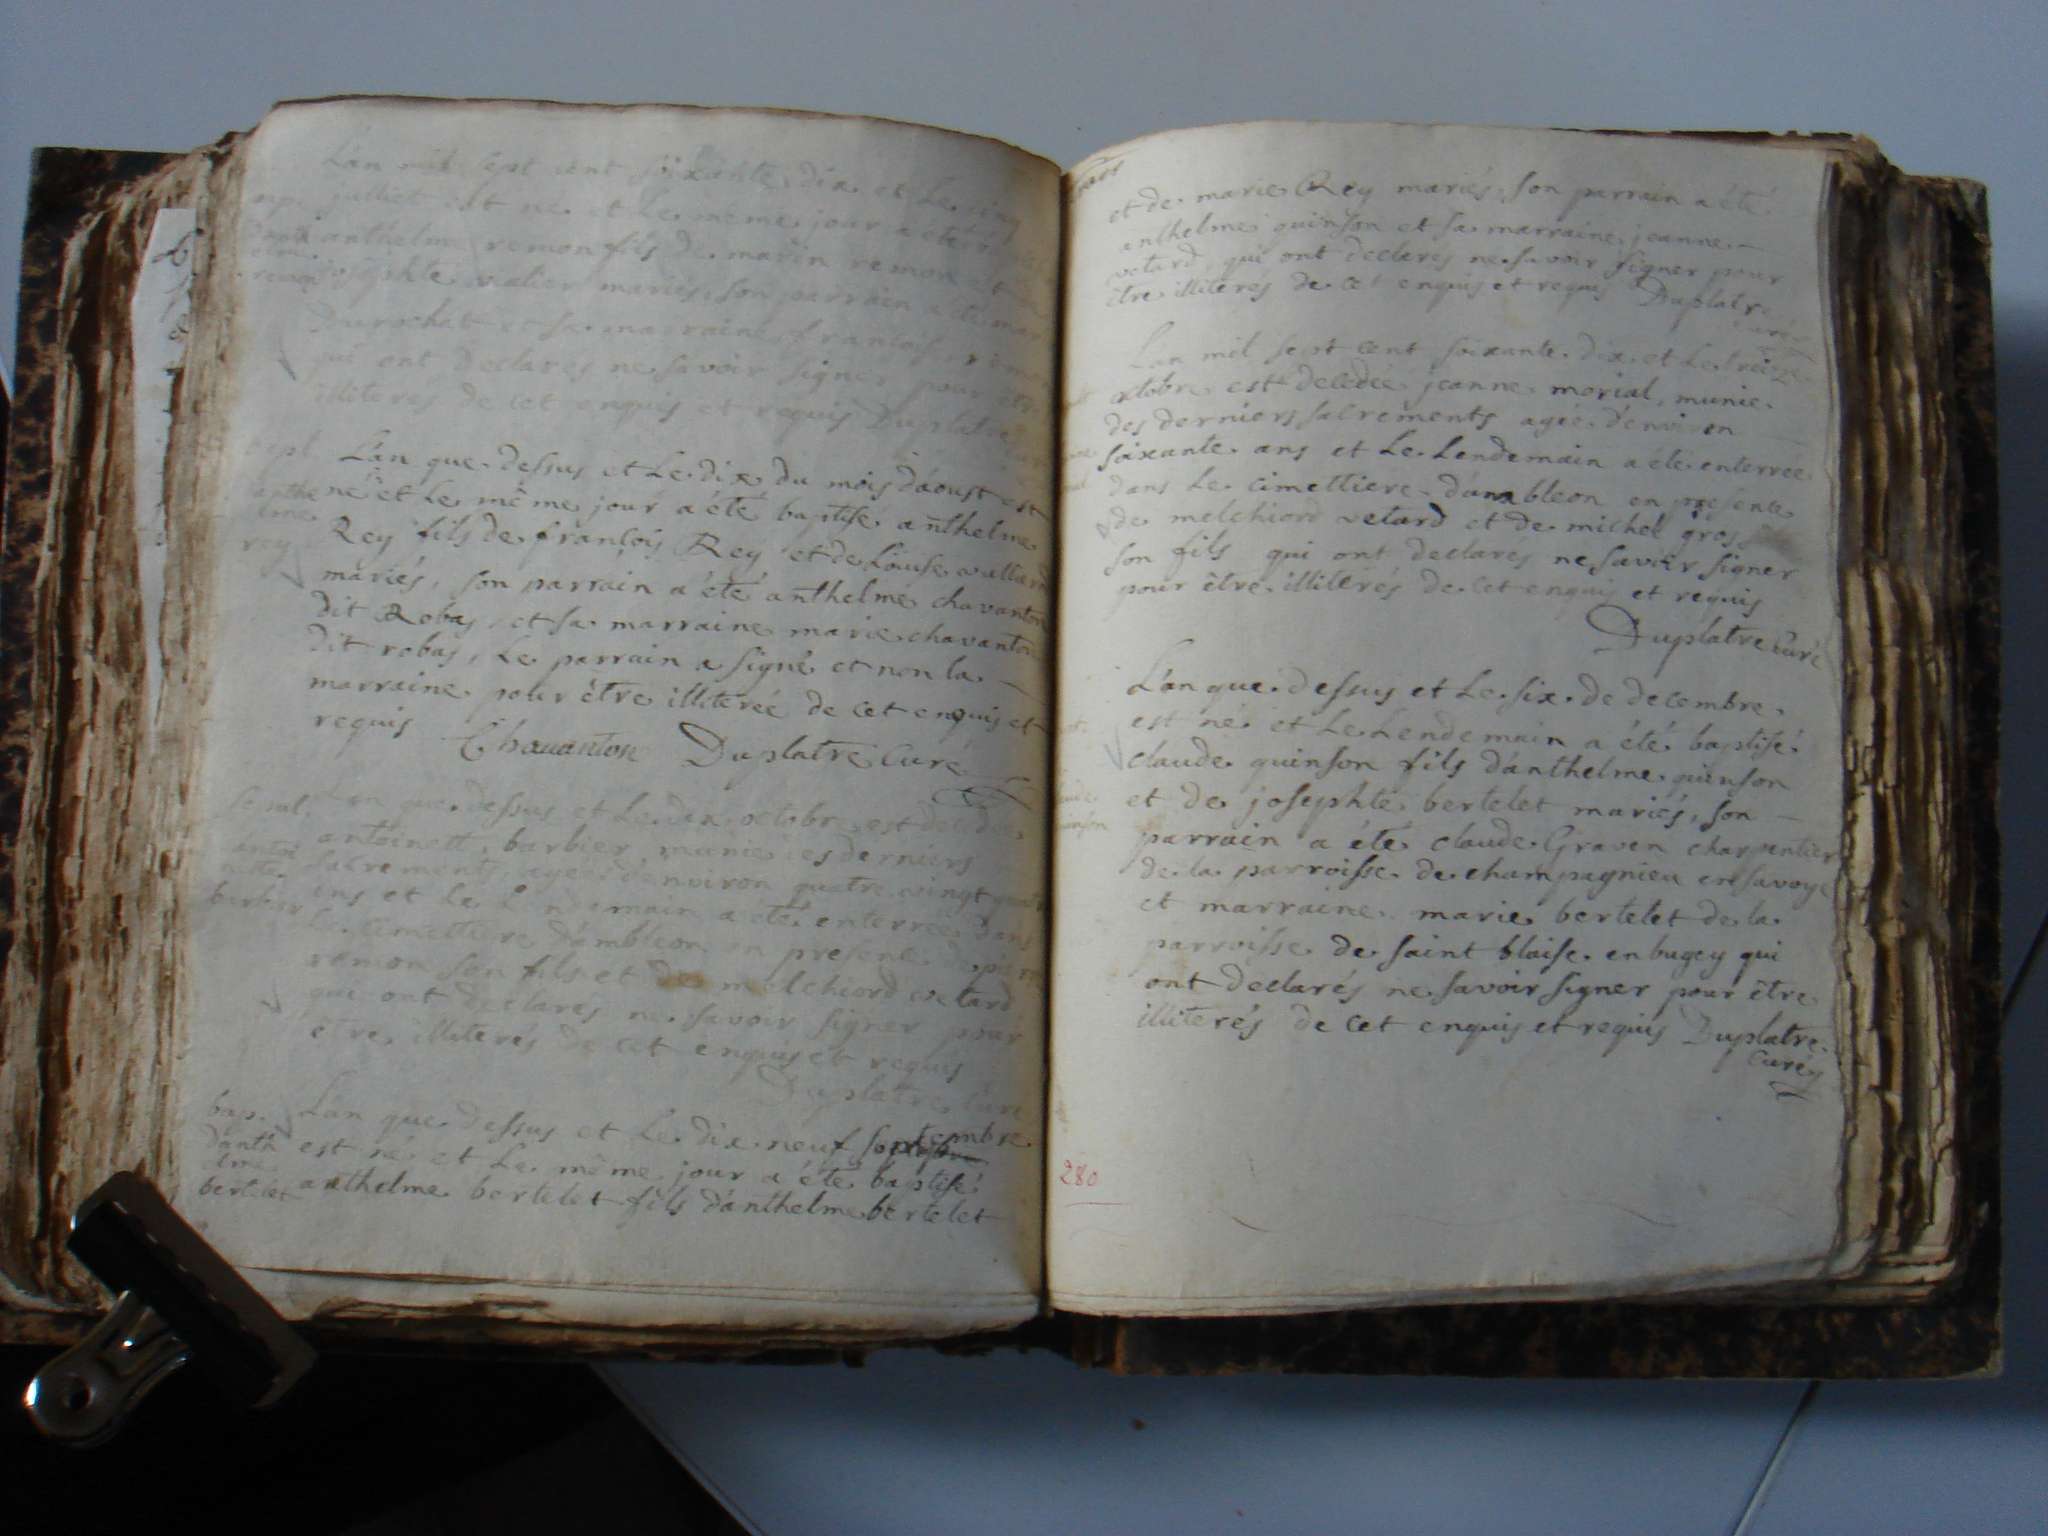 L'an mil sept cent soixante dix et le cinq
juillet est né et le même jour a été
anthelme remon fils de marin remon et
josephte valier mariés, son parrain a été
Durochat et sa marraine françoise remon
qui ont declarés ne savoir signer pour être
illiterés de cet enquis et requis Duplatre
bapt.
anthe
lme
rey
L'an que dessus et le dix du mois d'aoust est
né et le même jour a été baptisé anthelme
Rey fils de françois Rey et de Louise
mariés, son parrain a été anthelme chavanton
dit Robas, et sa marraine marie chavanton
dit robas, le parrain a signé et non la
marraine pour être illiterée de cet enquis et
requis Chavanton Duplatre Curé
Sepul.
antoi
nette
barbier
L'an que dessus et le dix octobre est decedée
antoinett barbier munie des derniers
sacrements, agée d'environ quatre vingt
ans et le lendemain a été enterrée dans
le cimettiere d'ambleon en presence de pierre
remon son fils et de melchiord vetard
qui ont declarés ne savoir signer pour
être illiterés de cet enquis et requis
Duplatre Curé
bap.
d'anth
elme
bertelet
L'an que dessus et le dix neuf septembre
est né et le même jour a été baptisé
anthelme bertelet fils d'anthelme bertelet
et de marie Rey mariés, son parrain a été
anthelme quinson et sa marraine jeanne
vetard, qui ont declarés ne savoir signer pour
être illiterés de cet enquis et requis Duplatre
curé
L'an mil sept cent soixante dix et le treize
octobre est decedée jeanne morial, munie
des derniers sacrements agée d'environ
soixante ans et le lendemain a été enterrée
dans le cimettiere d'ambleon en presence
de melchiord vetard et de michel gros
son fils qui ont declarés ne savoir signer
pour être illiterés de cet enquis et requis
Duplatre Curé
L'an que dessus et le six de decembre
est né et le lendemain a été baptisé
claude quinson fils d'anthelme quinson
et de josephte bertelet mariés, son
parrain a été claude Graven charpentier
de la parroisse de champagnieu en savoye
et marraine marie bertelet de la
parroisse de saint blaise en bugey qui
ont declarés ne savoir signer pour être
illiterés de cet enquis et requis Duplatre
Curé
280